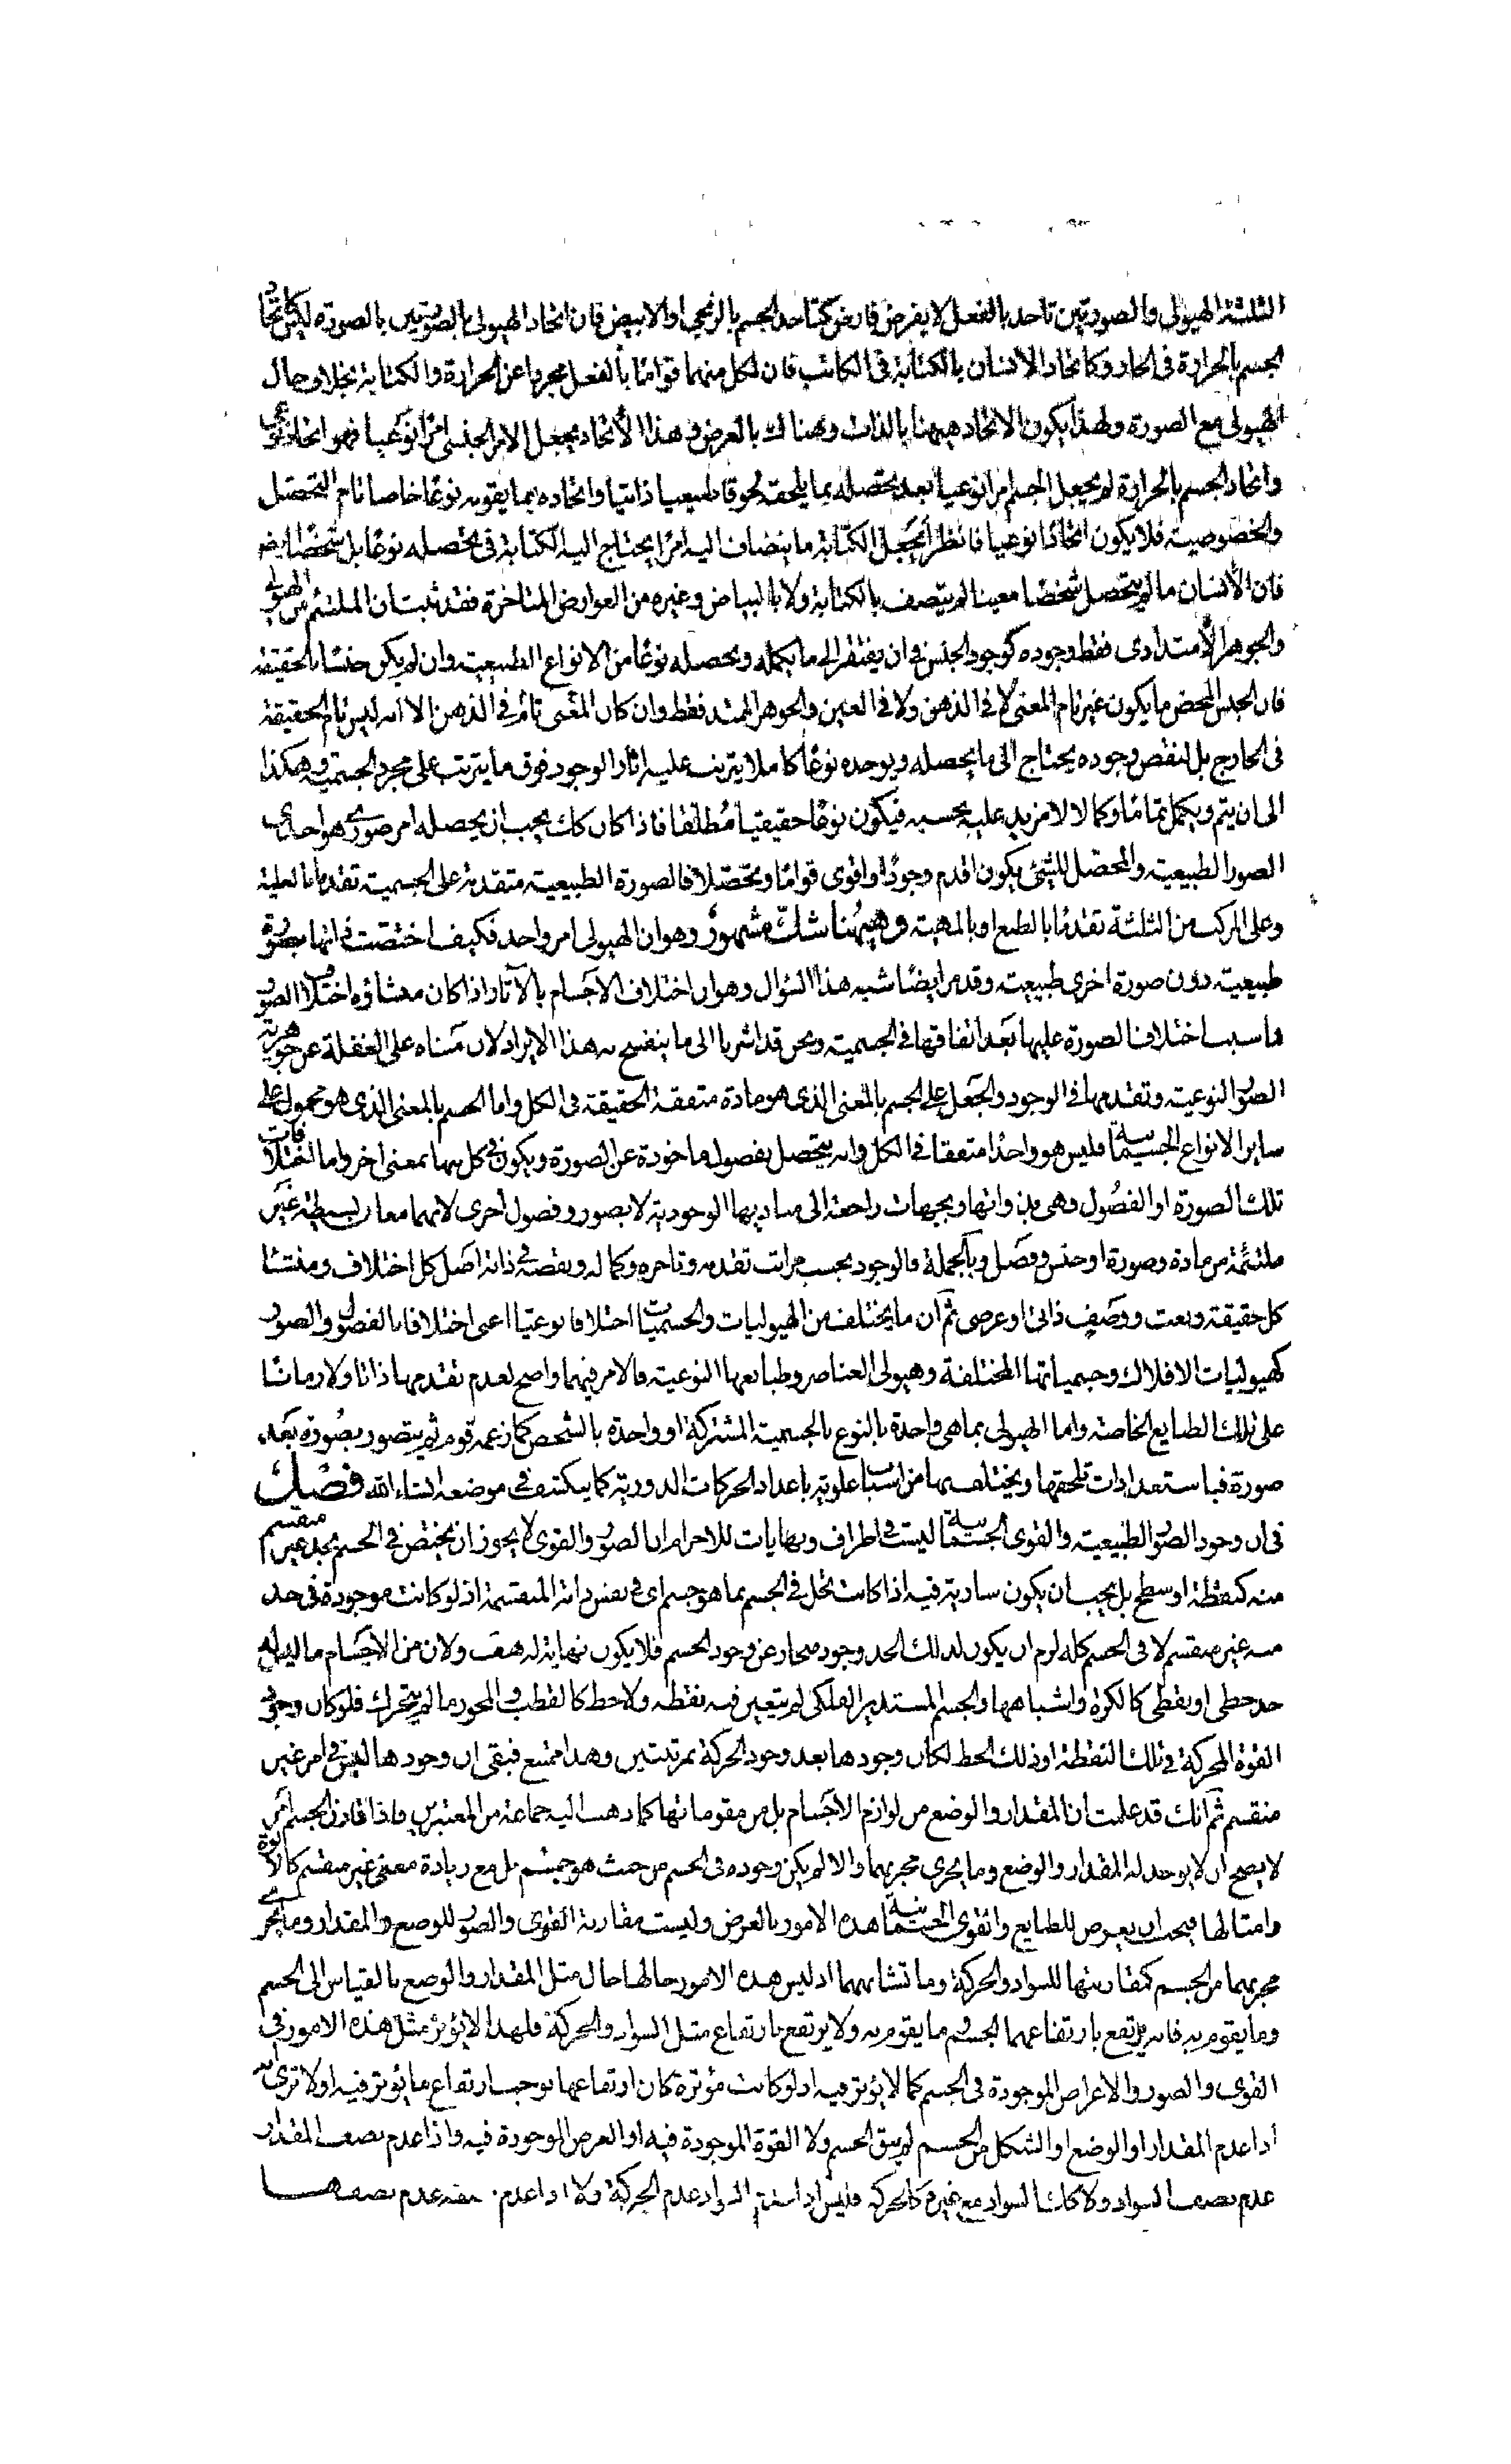 الثلثة الهيولى والصورتين تاحد بالفعل لا يفرض فارض كتاحد الجسم بالزنجى او الابيض فان اتحاد الهيولى بالصورتين بالصورة ليس كاتحاد
الجسم بالحرارة فى الحار وكاتحاد الانسان بالكتابة فى الكاتب فان لكل منهما قواما بالفعل مجردا عن الحرارة والكتابة بخلاف حال
الهيولى مع الصورة ولهذا يكون الاتحاد ههنا بالذات وهناك بالعرض وهذا الاتحاد يجعل الامر الجنسى امرا نوعيا فهو اتحاد نوعى
واتحاد الجسم بالحرارة لم يجعل الجسم امرا نوعيا بعد تحصله بما يلحقه لحوقا طبيعيا ذاتيا واتحاده بما يقومه نوعا خاصا تام التحصل
والخصوصية فلا يكون اتحادا نوعيا فانظر الجعل الكتابة ما ينضاف اليه امرا يحتاج اليه الكتابة فى تحصله نوعا بل شخصا ايضا
فان الانسان ما لم يتحصل شخصا معينا لم يتصف بالكتابة ولا بالبياض وغيره من العوارض المتاخرة فقد ثبت ان الملتئم من الهيولى
والجوهر الامتدادى فقط وجوده كوجود الجنس فى ان يفتقر الى ما يكمله ويحصله نوعا من الانواع الطبيعية وان لم يكن جنسا بالحقيقة
فان الجنس المحض ما يكون غير تام المعنى لا فى الذهن ولا فى العين والجوهر الممتد فقط وان كان المعنى تاما فى الذهن الا انه ليس تام الحقيقة
فى الخارج بل لنقص وجوده يحتاج الى ما يحصله ويوحده نوعا كاملا يترتب عليه اثار الوجود فوق ما يترتب على مجرد الجسمية وهكذا
الى ان يتم ويكمل تماما وكمالا لا مزيد عليه بحسبه فيكون نوعا حقيقيا مطلقا فاذا كان كك يجب ان يحصله امر صورى هو احدى
الصور الطبيعية والمحصل للشئ يكون اقدم وجودا واقوى قواما وتحصلا فالصورة الطبيعية متقدمة على الجسمية تقدما بالعلية
وعلى المركب من الثلثة تقدما بالطبع او بالمهية وههنا شك مشهور وهو ان الهيولى امر واحد فكيف اختصت فى انها بصورة
طبيعية دون صورة اخرى طبيعية وقد مر ايضا شبه هذا السؤال وهو ان اختلاف الاجسام بالآثار اذا كان منشاؤه اختلاف الصور
فما سبب اختلاف الصورة عليها بعد اتفاقها فى الجسمية ونحن قد اشرنا الى ما ينفسخ به هذا الايراد لان مبناه على الغفلة عن جوهرية
الصور النوعية وتقدمها فى الوجود والجعل على الجسم بالمعنى الذى هو مادة متفقة الحقيقة فى الكل واما الجسم بالمعنى الذى هو محمول على
ساير الانواع الجسمانية فليس هو واحدا متفقا فى الكل وانه يتحصل بفصول ماخوذة عن الصورة ويكون فى كل منها بمعنى اخر واما اختلافات
تلك الصورة او الفصول وهى بذواتها وبجهات راجعة الى مباديها الوجودية لا بصور وفصول اخرى لانهما معان بسيطة غير
ملتئمة من مادة وصورة او جنس وفصل وبالجملة فالوجود بحسب مراتب تقدمه وتاخره وكماله ونقصه فى ذاته اصل كل اختلاف ومنشئا
كل حقيقة ونعت ووصف ذاتى او عرضى ثم ان ما يختلف من الهيوليات والجسميات اختلافا نوعيا اعنى اختلافا بالفصول والصور
كهيوليات الافلاك وجسمياتها المختلفة وهيولى العناصر وطبايعها النوعية فالامر فيهما واضح لعدم تقدمها ذاتا ولا زمانا
على تلك الطبايع الخاصة واما الهيولى بما هى واحدة بالنوع بالجسمية المشتركة او واحدة بالشخص كما زعمه قوم ثم يتصور بصورة بعد
صورة فباستعدادات تلحقها ويختلف بها من اسباب علوية باعداد الحركات الدورية كما ينكشف فى موضعه انشاء الله فصل
فى ان وجود الصور الطبيعية والقوى الجسمانية ليست فى اطراف ونهايات للاجرام ان الصور والقوى لا يجوز ان يختص فى الجسم بحد غير منقسم
منه كنقطة او سطح بل يجب ان يكون سارية فيه اذا كانت تحل فى الجسم بما هو جسم اى فى نفس ذاته المنقسمة اذ لو كانت موجودة فى حد
منه غير منقسم لا فى الجسم كله لزم ان يكون لذلك الحد وجود منحاز عن وجود الجسم فلا يكون نهاية له هف ولان من الاجسام ما ليس له
حد خطى او نقطى كالكرة واشباهها والجسم المستدير الفلكى لم يتعين فيه نقطة ولا خط كالقطب والمحور ما لم يتحرك فلو كان وجود
القوة المحركة فى تلك النقطة او ذلك الخط لكان وجودها بعد وجود الحركة بمرتبتين وهذا ممتنع فبقى ان وجودها ليس فى امر غير
منقسم ثم انك قد علمت ان المقدار والوضع من لوازم الاجسام بل من مقوماتها كما ذهب اليه جماعة من المعتبرين فاذا قارن الجسم امر
لا يصح ان لا يوجد له المقدار والوضع وما يجرى مجريهما والا لم يكن وجوده فى الجسم من حيث هو جسم بل مع زيادة معنى غير منقسم كالابوة
وامثالها فيجب ان يعرض للطبايع والقوى الجسمانية هذه الامور بالعرض وليست مقارنة القوى والصور للوضع والمقدار وما يجرى
مجريهما من الجسم كمقارنتها للسواد والحركة وما تشابههما اذ ليس هذه الامور حالها حال مثل المقدار والوضع بالقياس الى الجسم
وما يقوم به فانه يرتفع بارتفاعهما الجسم وما يقوم به ولا يرتفع بارتفاع مثل السواد والحركة فلهذا لا يؤثر مثل هذه الامور فى
القوى والصور والاعراض الموجودة فى الجسم كما لا يؤثر فيه اذ لو كانت مؤثرة كان ارتفاعها يوجب ارتفاع ما يؤثر فيه اولا ترى انه
اذا عدم المقدار او الوضع او الشكل من الجسم لم يبق الجسم ولا القوة الموجودة فيه او العرض الموجودة فيه واذا عدم نصف المقدار
عدم نصف السواد ولا كذلك السواد مع غيره كالحركة فليس اذا السواد عدم الحركة ولا اذا عدم نصفه عدم نصفها